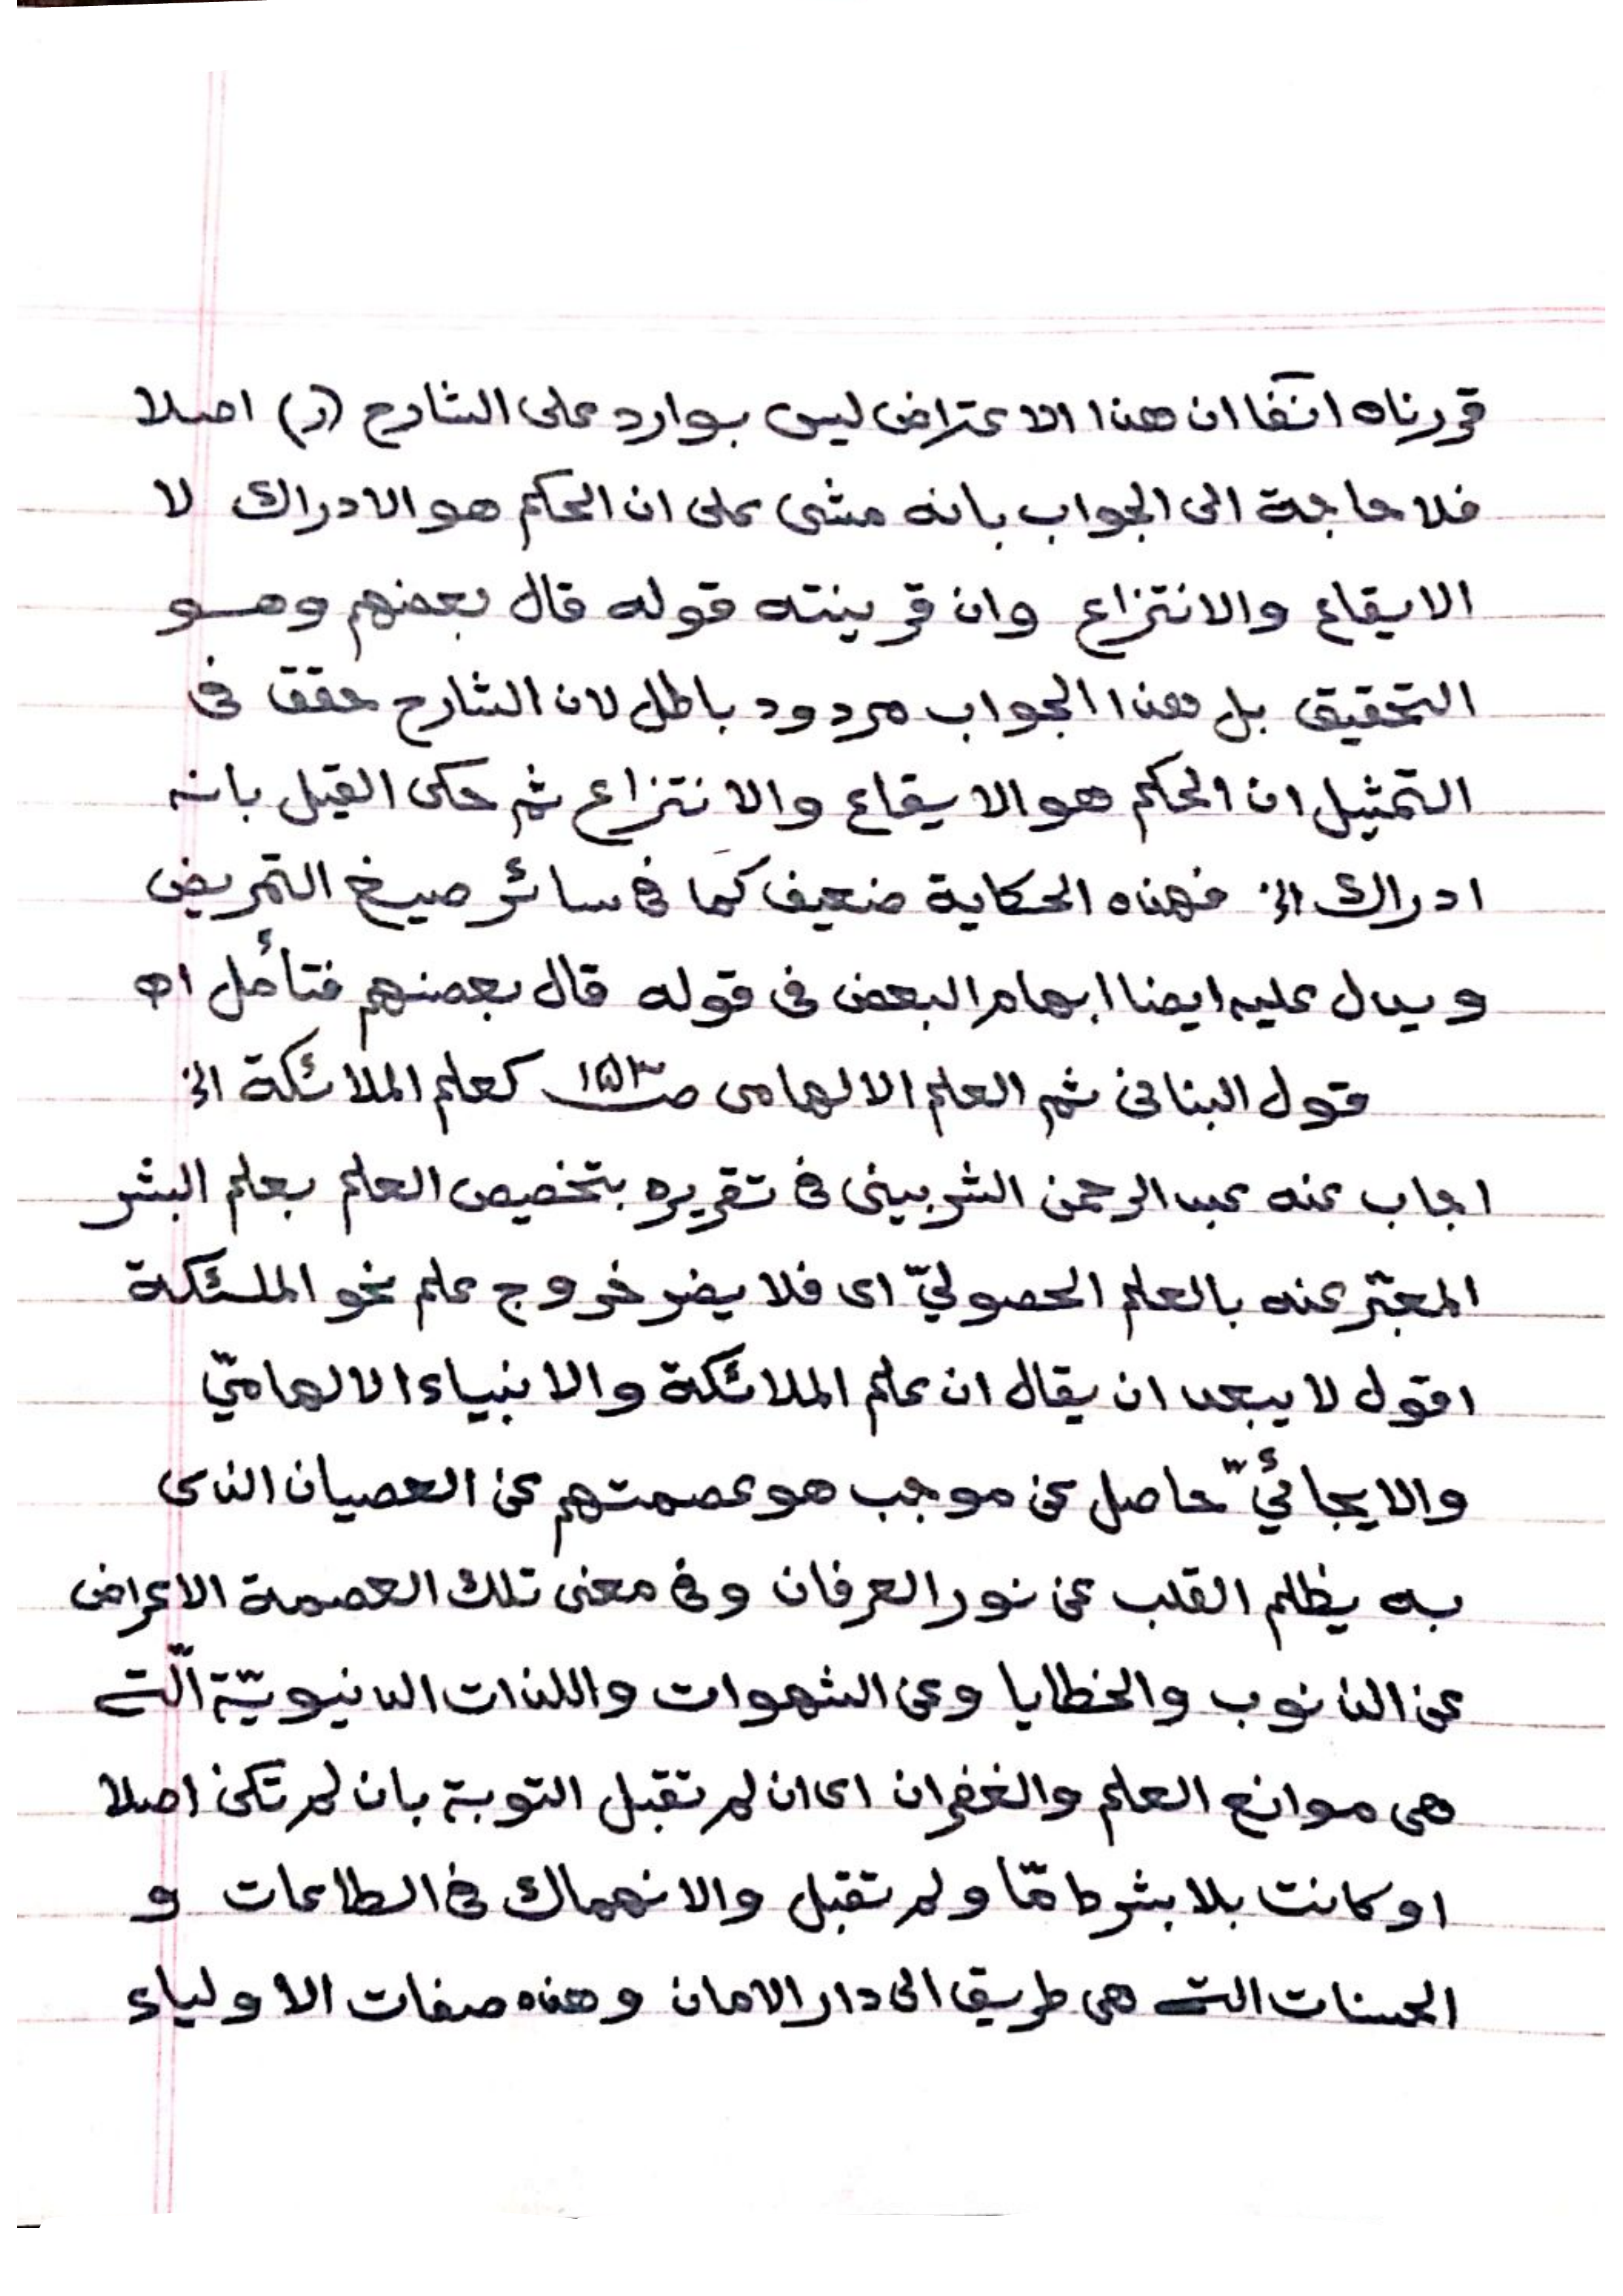 قررناه انٓفا ان هذا الاعتراض ليس بوارد على الشارح (ر) اصلا
فلا حاجة الى الجواب بانه مشى على ان الحكم هو الادراك لا
الايقاع والانتزاع وان قرينته قوله قال بعضهم وهو
التحقيق بل هذا الجواب مردود باطل لان الشارح حقق فى
التمثيل ان الحكم هو الايقاع والانتزاع ثم حكى القيل بانه
ادراك الخ فهذه الحكاية ضعيف كمَا فى سائر صيغ التمريض
ويدل عليه ايضا ابهام البعض فى قوله قال بعضهم فتأمل اه
قول البنانى ثم العلم الالهامى صـ١٥٣ كعلم الملائكة الخ
اجاب عنه عبد الرحمن الشربينى فى تقريره بتخصيص العلم بعلم البشر
المعبّر عنه بالعلم الحصوليّ اى فلا يضر خروج علم نحو الملئكة
اقول لا يبعد ان يقال ان علم الملائكة والانبياء الالهاميّ
والايجائيّ حاصل عن موجب هو عصمتهم عن العصيان الذى
به يظلم القلب عن نور العرفان وفى معنى تلك العصمة الاعراض
عن الذنوب والخطايا وعن الشهوات واللذات الدنيويّة الّتى
هى موانع العلم والغفران اى ان لم تقبل التوبة بان لم تكن اصلا
او كانت بلا بشرط مّا ولم تقبل والانهماك فى الطاعات و
الحسنات التى هى طريق الى دار الامان وهذه صفات الاولياء